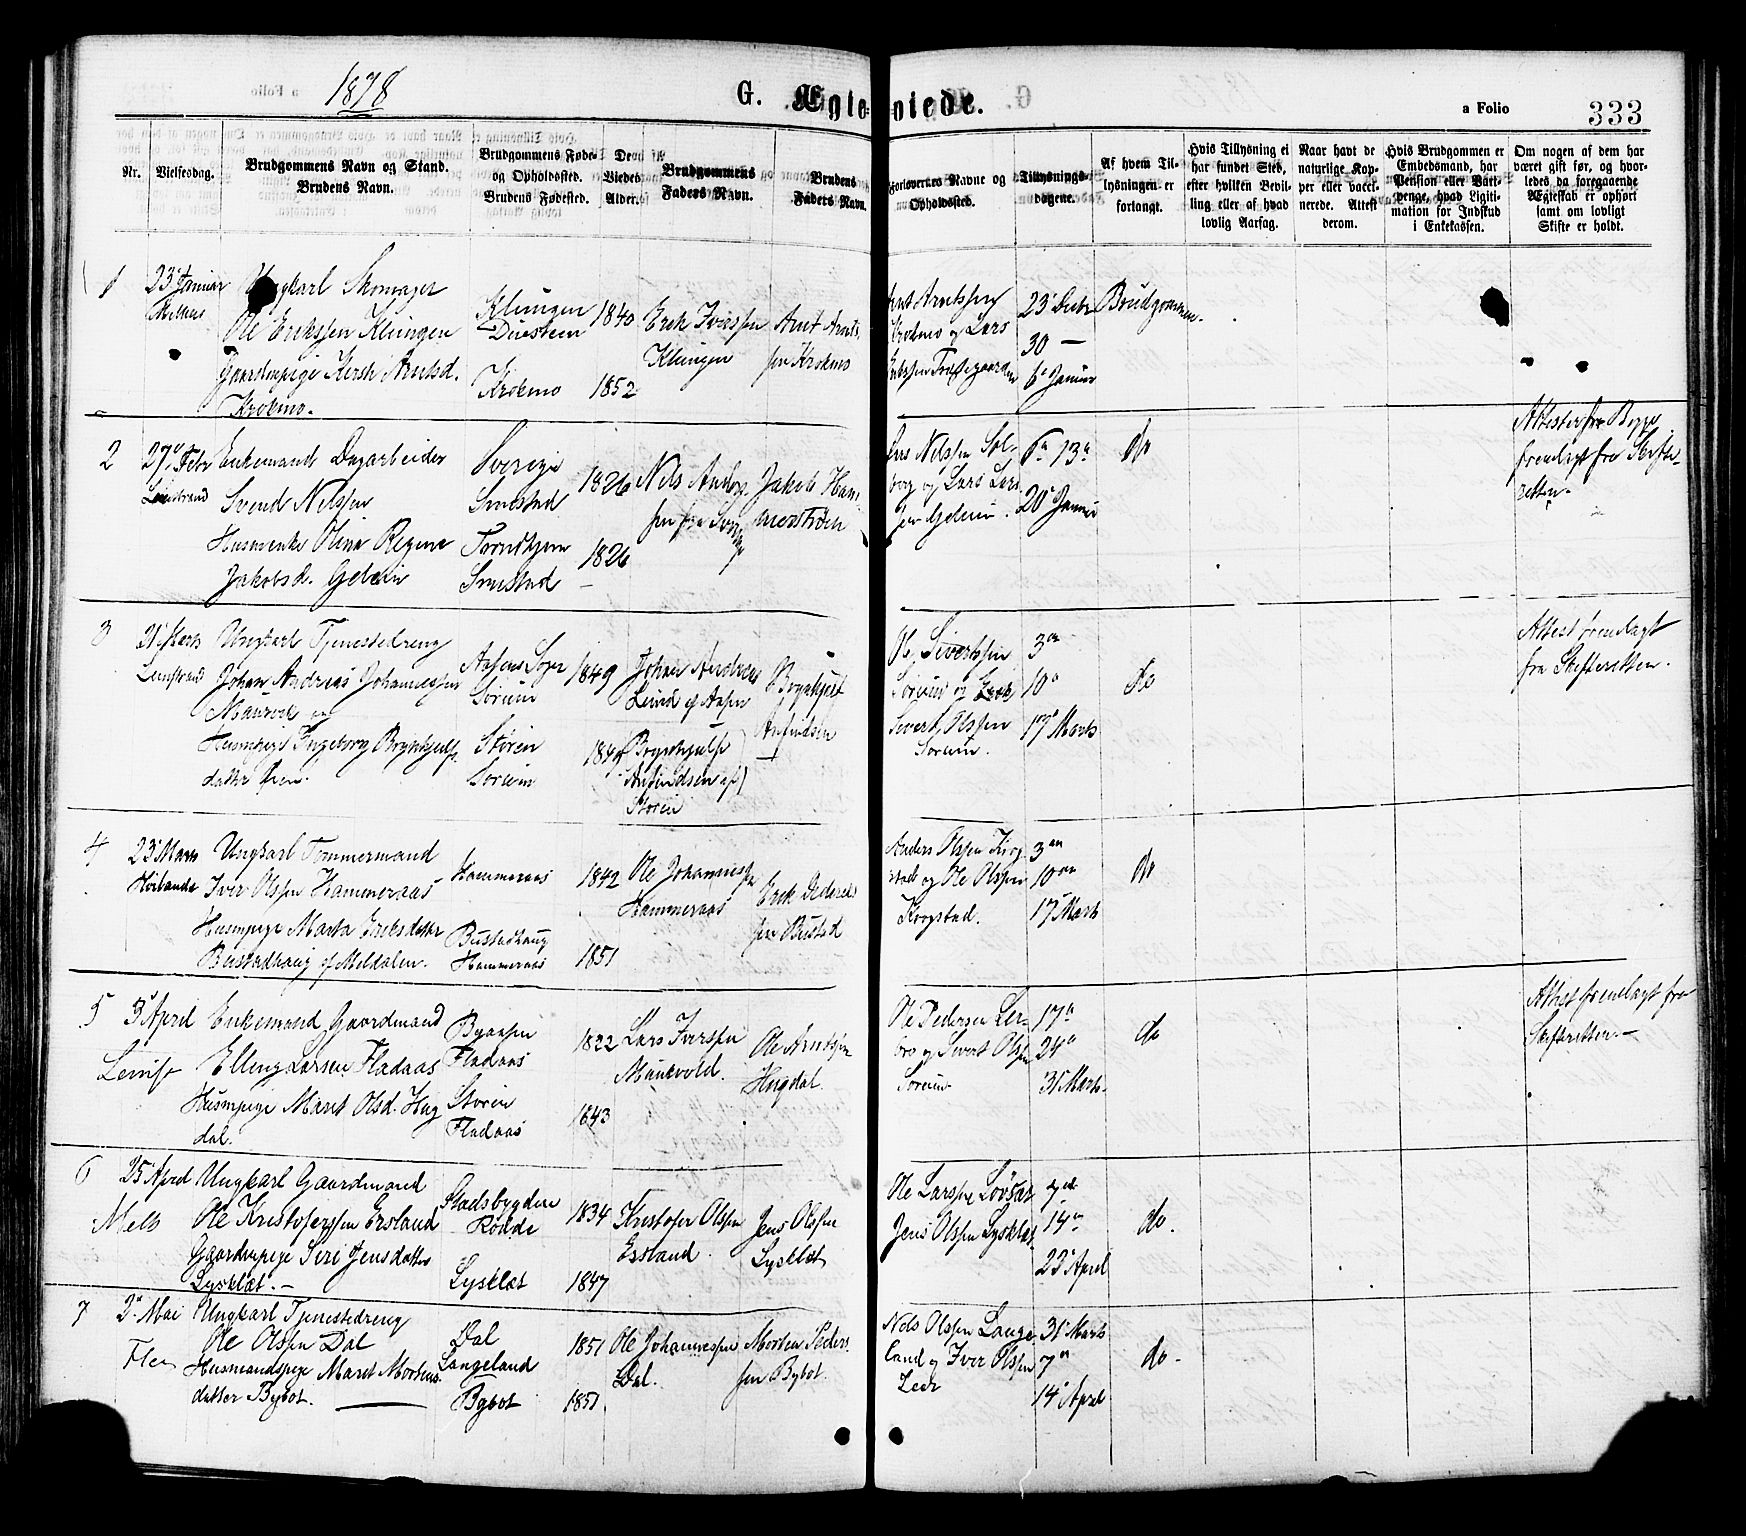 1878
G. Ægteviede.
a Folio 333
Nr.
Vielsesdag.
Brudgommens Navn og Stand.
Brudens Navn.
Brudgommens Føde-
og Opholdssted.
Brudens Fødested.
De
Viedes
Alder.
Brudgommens
Faders Navn.
Brudens
Faders Navn.
Forlovernes Navne og
Opholdssted.
Tillysnings-
dagene.
Af hvem Til-
lysningen er
forlangt.
Hvis Tillysning ei
har fundet Sted,
efter hvilken Bevil-
ling eller af hvad
lovlig Aarsag.
Naar havt de
naturlige Kop-
per eller vacci-
nerede. Attest
derom.
Hvis Brudgommen er
Embedsmand, har
Pension eller Vart-
penge, hvad Ligiti-
mation for Indskud
i Enkekassen.
Om nogen af dem har
været gift før, og hvor-
ledes da foregaaende
Ægteskab er ophørt
samt om lovligt
Skifte er holdt.
1
23 Januar
Melhus
Ungkarl Skomager
Ole Eriksen Klungen
Gaardmpige Kersti Arntsd.
Krokmo.
Klungen
Krokmo
1840
1852
Erik Iverssen
Klungen
Arnt Arnts
sen Krokmo
Arnt Arntssen
Krokmo og Lars
23 Decbr
30 —
6 Januar
Brudgommen.
2
27 Febr
Leinstrand
Enkemand Dagarbeider
Svend Nilssen
Husmenke Olina Regine
Jakobsd. Gdein
Sverige
Smestad
Trondhjem
Smestad
1826
1826
Nils Anders
sen fra Sverige
Jakob Ham
merstrøm
Nilssen Sol-
bog og Lars Lars
sen
6 13
20 Januar
do
Attester fra Bygs
fremlagt fra Skifte-
retten.
3
21 Marts
Leinstrand
Ungkarl Tjenestedreng
Johan Andreas Johannessen
og
Husmpige Ingeborg Brynhjulfs
datter Øien.
Aasens Sogn
Sørum
Støren
Sørum
1849
1849
Johan Andreas
Lund af Aasen
Brynhjulf
Anfindsen af
Støren
Brynhjulf
Anfindsen
Ole Sivertssen
Sørum og
Sivert Olssen
Sørum.
3
10
17 Marts
do
Attest fremlagt
fra Skifteretten.
4
23 Marts
Høilandet
Ungkarl Tømmermand
Iver Olssen Hammeraas
Husmpige Marta Eriksdatter
Bustadhaug af Meldalen.
Hammeraas
Bustadhaug
Hammeraas
1842
1851
Ole Johannessen
Hammeraas
Erik
sen Bustad
Anders Olssen Krog
stad og Ole Olssen
Krogstad.
3
10
17 Marts
do
5
3 April
Enkemand Gaardmand
Elling Larsen Fladaas
Husmpige Maret Olsd. Hug
dal.
Byaasen
Fladaas
Støren
Fladaas
1822
1843
Lars Iverssen
Ole Arntssen
Hugdal.
Ole Pedersen Ler-
bro og Sivert Olssen
Sørum
17
24
31 Marts
do
Attest fremlagt fra
Skifteretten —
6
25 April
Melh
Ungkarl Gaardmand
Ole Kristoferssen Esland
Gaardmpige Siri Jensdatter
Lysklæt. —
Stadsbygden
Rødde
Lysklæt
1834
1847
Kristofer Olssen
Essland.
Jens Olssen
Lysklæt
Ole Larssen Løvsæt
Jens Olssen Lysklæt
7
14
22 April
do.
7
2 Mai
Flaa
Ungkarl Tjenestedreng
Ole Olssen Dal
Husmandspige Maret Mortens
datter Bybot.
Dal
Langeland
Bybot
1851
1851.
Ole Johannessen
Dal.
Morten Peders
sen Bybot.
Nils Olssen Lange
land og Iver Olssen
Leer
31 Marts
7
14 April
do.